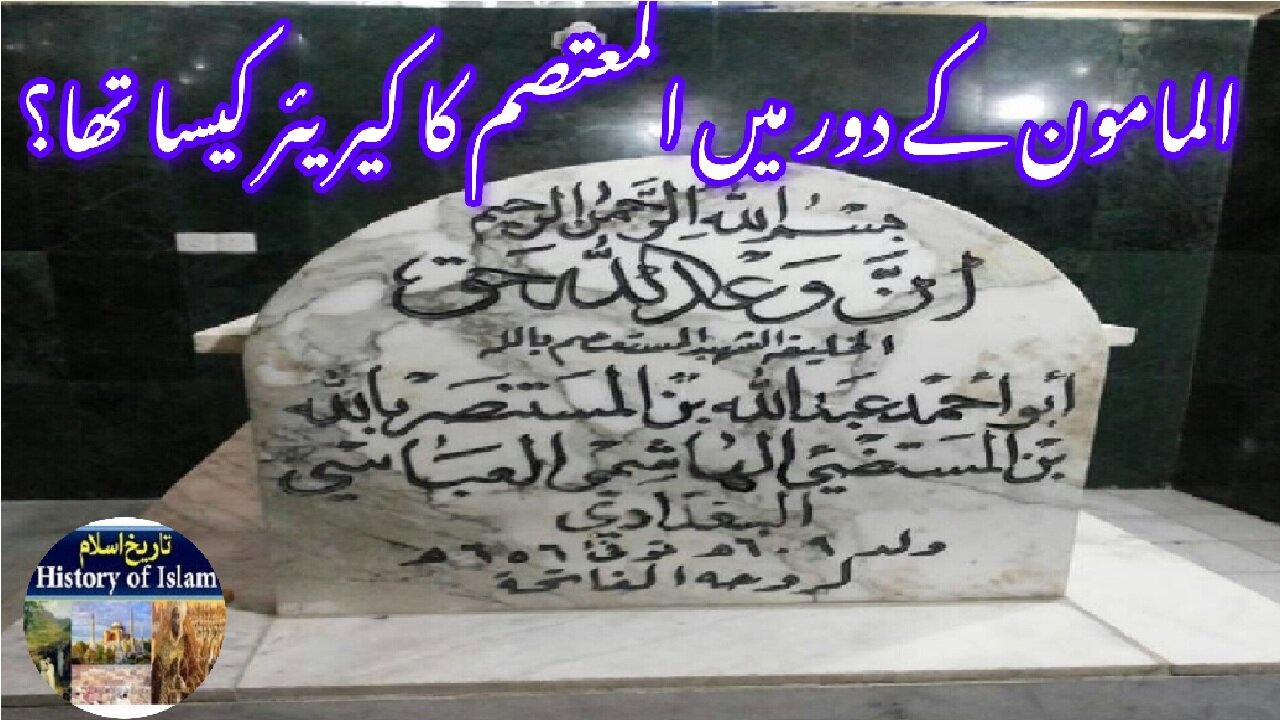 المامون کے دور میں المعتصم کا کیریئر کیسا تھا؟
بسم الله الرحمن الرحيم
إن وعد الله حق
الخليفة الشهيد المستعصم بالله
أبو أحمد عبد الله بن المستنصر بالله
بن المستضيء الهاشمي العباسي
البغدادي
ولد ٦٠٩هـ توفي ٦٥٦هـ
لروحه الفاتحة
تاریخ اسلام
History of Islam